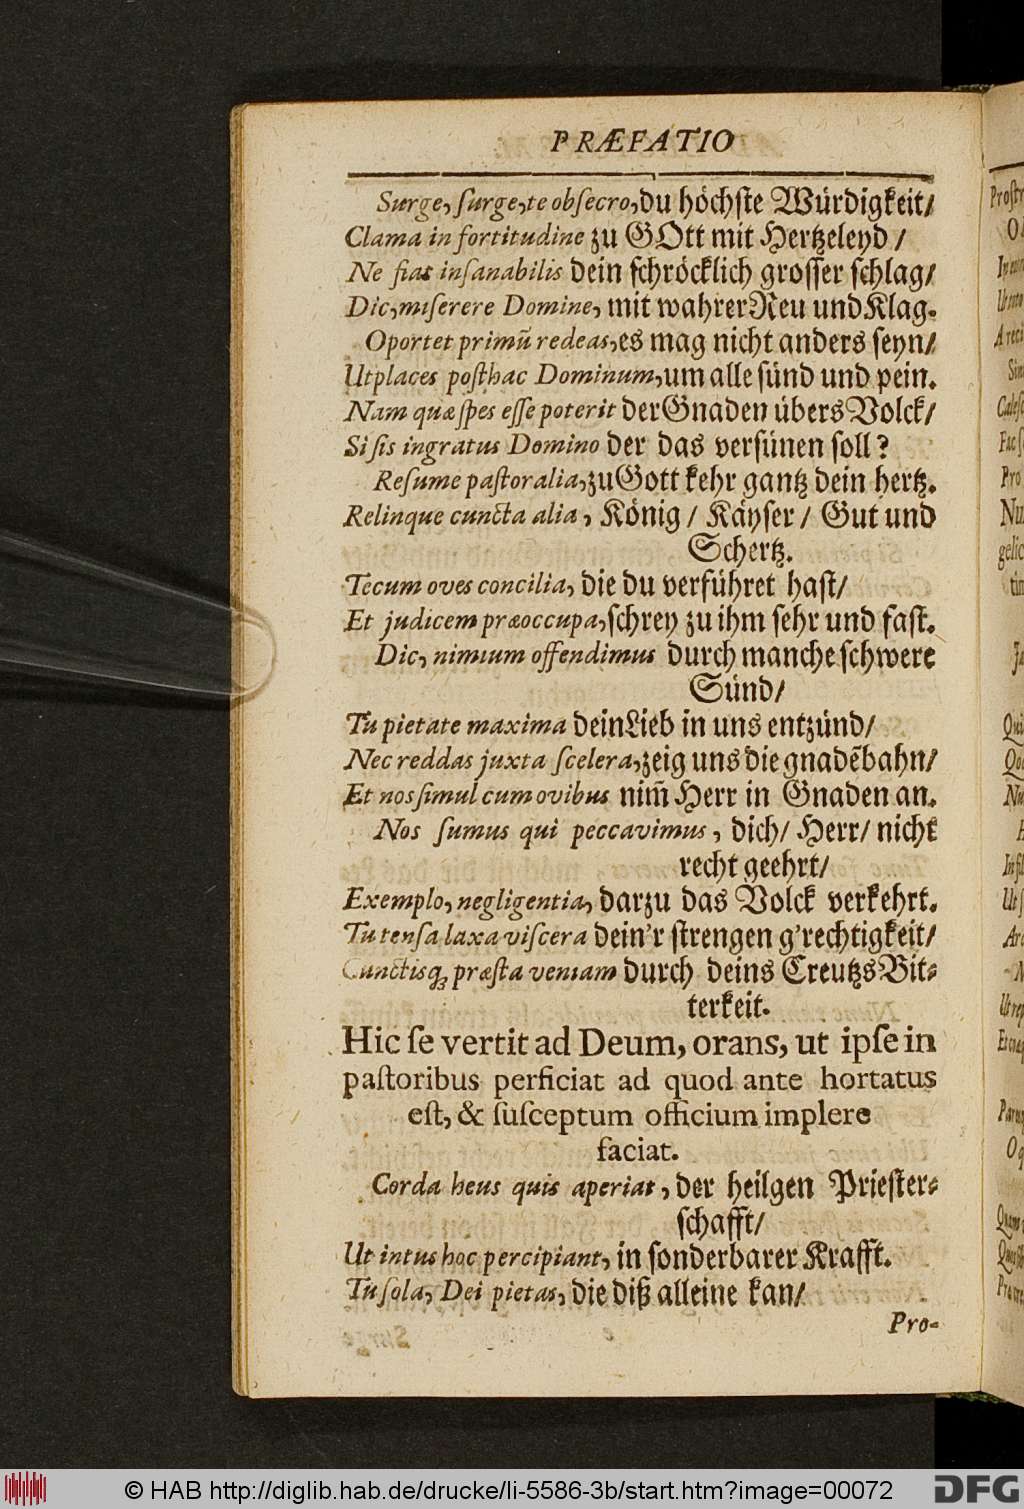 PRÆFATIO
Surge, ſurge, te obſecro, du höchſte Würdigkeit/
Clama in fortitudine zu GOtt mit Hertzeleyd /
Ne fiat inſanabilis dein ſchröcklich groſſer ſchlag/
Dic, miſerere Domine, mit wahrer Reu und Klag.
Oportet primũ redeas, es mag nicht anders ſeyn/
Ut places poſthac Dominum, um alle ſünd und pein.
Nam quæ ſpes eſſe poterit der Gnaden übers Volck/
Si ſis ingratus Domino der das verſünen ſoll?
Reſume paſtoralia, zu Gott kehr gantz dein hertz.
Relinque cuncta alia, König / Käyſer / Gut und
Schertz.
Tecum oves concilia, die du verführet haſt/
Et judicem præoccupa, ſchrey zu ihm ſehr und faſt.
Dic, nimium offendimus durch manche ſchwere
Sünd/
Tu pietate maxima dein Lieb in uns entzünd/
Nec reddas juxta ſcelera, zeig uns die gnadẽbahn/
Et nos ſimul cum ovibus nim̃ Herr in Gnaden an.
Nos ſumus qui peccavimus, dich/ Herr/ nicht
recht geehrt/
Exemplo, negligentia, darzu das Volck verkehrt.
Tu tenſa laxa viſcera dein'r ſtrengen g'rechtigkeit/
Cunctisq; præſta veniam durch deins Creutzs Bit⸗
terkeit.
Hic ſe vertit ad Deum, orans, ut ipſe in
paſtoribus perficiat ad quod ante hortatus
eſt, & ſuſceptum officium implere
faciat.
Corda heus quis aperiat, der heilgen Prieſter⸗
ſchafft/
Ut intus hoc percipiant, in ſonderbarer Krafft.
Tu ſola, Dei pietas, die diß alleine kan/
Pro-
© HAB http://diglib.hab.de/drucke/li-5586-3b/start.htm?image=00072
DFG